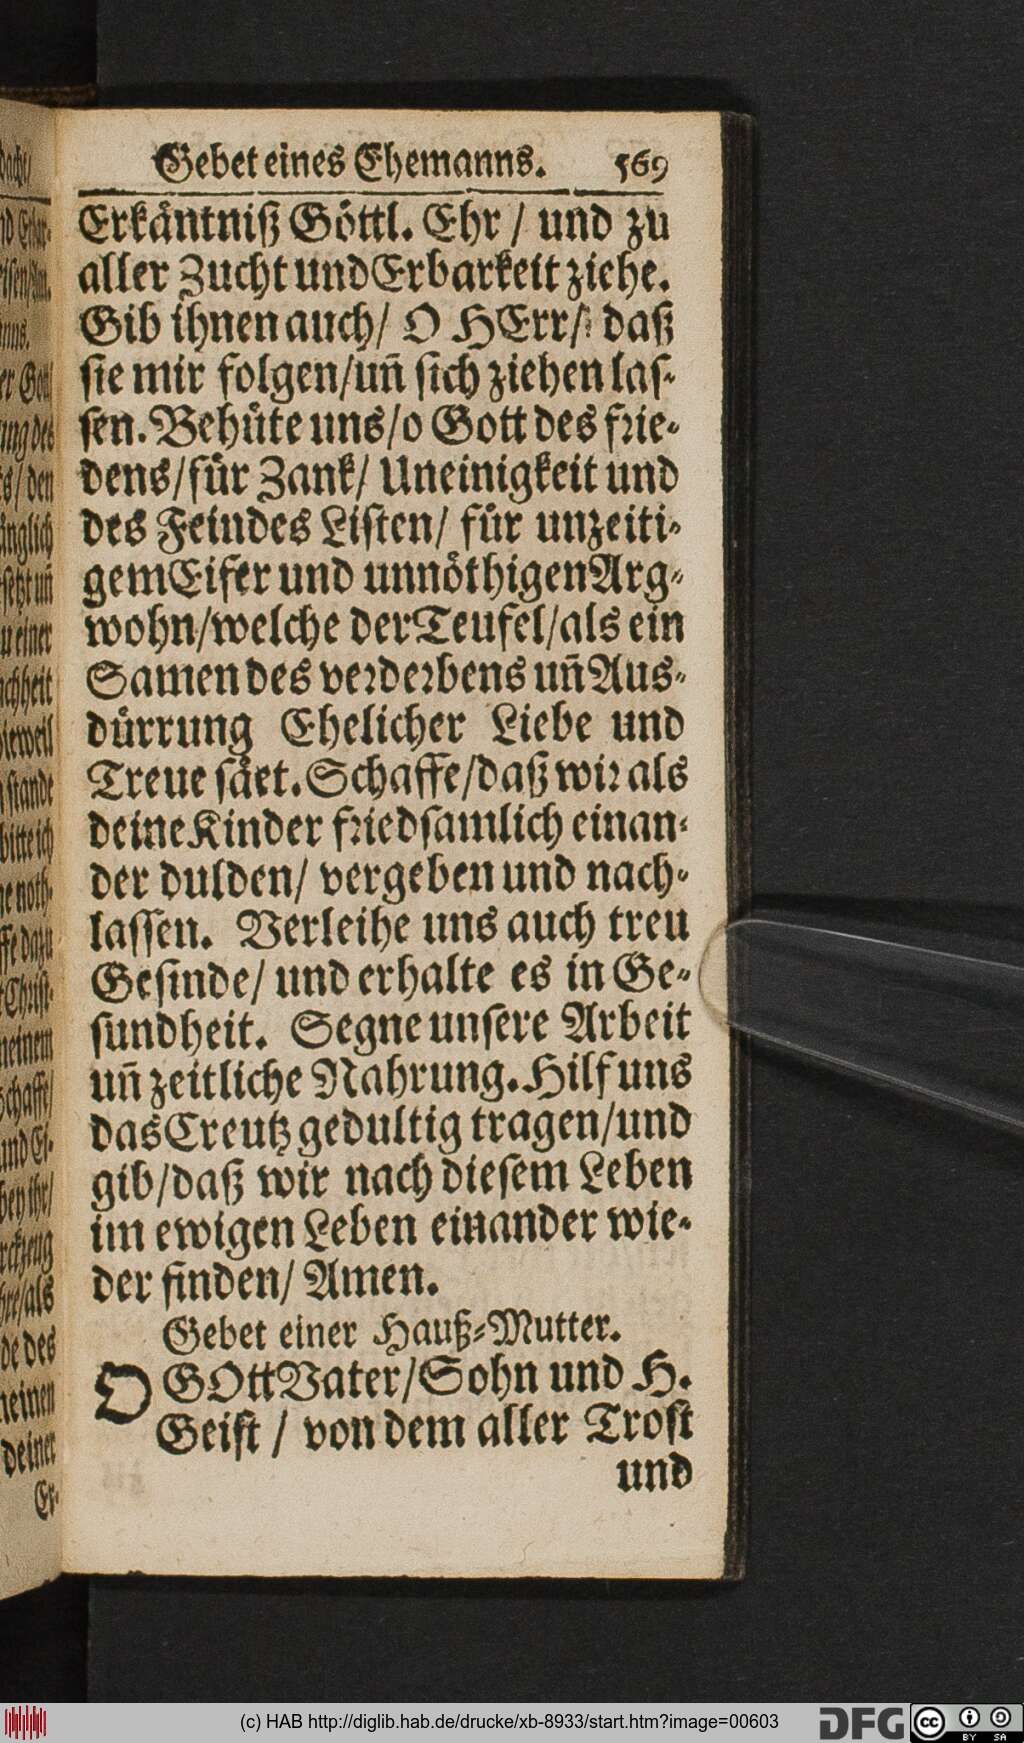 Gebet eines Ehemanns. 569
Erkäntniß Göttl. Ehr / und zu
aller Zucht und Erbarkeit ziehe.
Gib ihnen auch / O HErr / daß
sie mir folgen / uñ sich ziehen las-
sen. Behüte uns / o Gott des frie-
dens / für Zank / Uneinigkeit und
des Feindes Listen / für unzeiti-
gem Eifer und unnöthigen Arg-
wohn / welche der Teufel / als ein
Samen des verderbens uñ Aus-
dürrung Ehelicher Liebe und
Treue säet. Schaffe / daß wir als
deine Kinder friedsamlich einan-
der dulden / vergeben und nach-
lassen. Verleihe uns auch treu
Gesinde / und erhalte es in Ge-
sundheit. Segne unsere Arbeit
uñ zeitliche Nahrung. Hilf uns
das Creutz gedultig tragen / und
gib / daß wir nach diesem Leben
im ewigen Leben einander wie-
der finden / Amen.
Gebet einer Hauß-Mutter.
O GOtt Vater / Sohn und H.
Geist / von dem aller Trost
und
(c) HAB http://diglib.hab.de/drucke/xb-8933/start.htm?image=00603
DFG cc BY SA